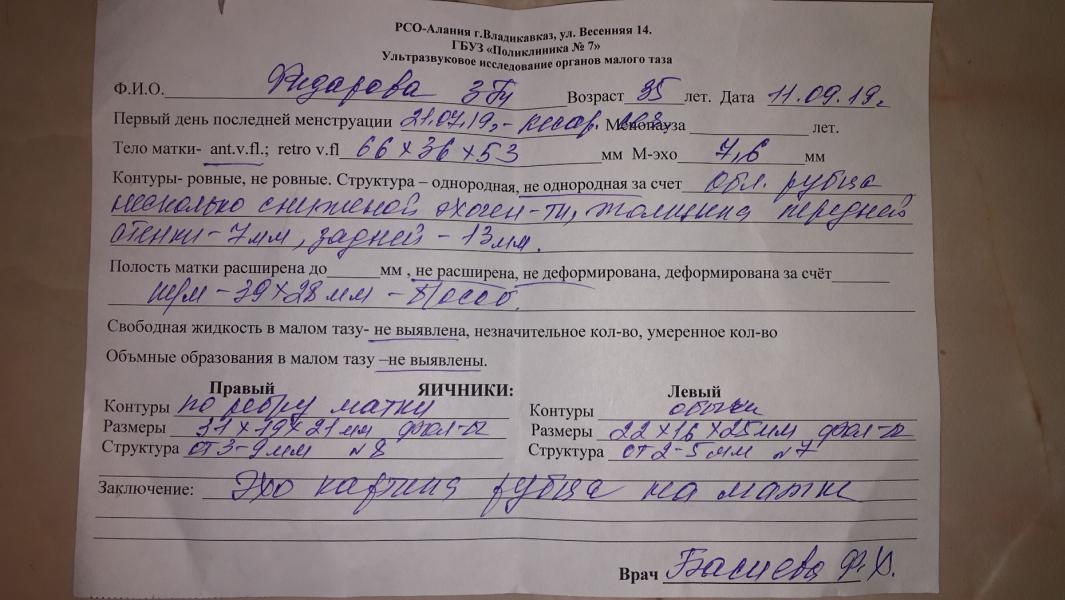 РСО-Алания г.Владикавказ, ул. Весенняя 14.
ГБУЗ «Поликлиника № 7»
Ультразвуковое исследование органов малого таза
Ф.И.О. Фидарова Возраст 35 лет. Дата 11.09.19г.
Первый день последней менструации 21.07.19г- Менопауза лет.
Тело матки- ant.v.fl.; retro v.fl 66×36×53 мм М-эхо 7,6 мм
Контуры- ровные, не ровные. Структура – однородная, не однородная за счет обл. рубца
несколько сниженой эхоген-ти, толщина передней
стенки - 7мм, задней - 13мм.
Полость матки расширена до мм , не расширена, не деформирована, деформирована за счёт
ш/м - 39×28 мм -
Свободная жидкость в малом тазу- не выявлена, незначительное кол-во, умеренное кол-во
Объмные образования в малом тазу –не выявлены.
Правый ЯИЧНИКИ: Левый
Контуры по ребру матки Контуры обычн
Размеры 31×19×21мм фол-ы Размеры 22×16×25мм фол-ы
Структура от 3-9мм №8 Структура от 2-5мм №7
Заключение: Эхо картина рубца на матке
Врач Басиева Ф.Х.